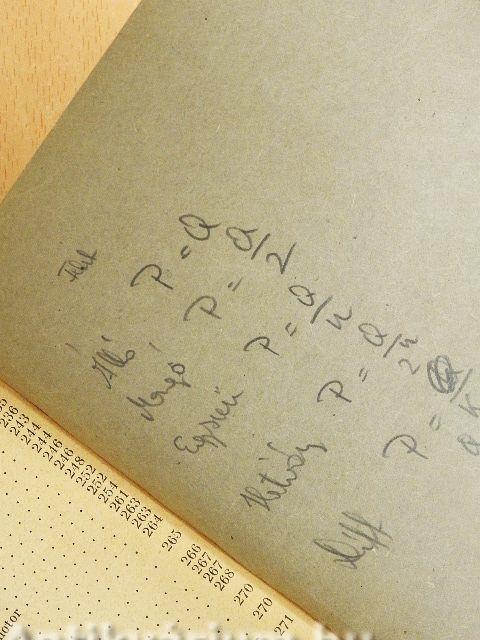 Álló P = Q
Mozgó P = Q/2
Egyszerű P = Q/n
Hatvány P = Q/2ⁿ
Diff P =
236
243
244
244
246
246
248
252
252
254
261
263
263
264
265
266
267
267
268
270
270
271
motor
antikvarium.hu